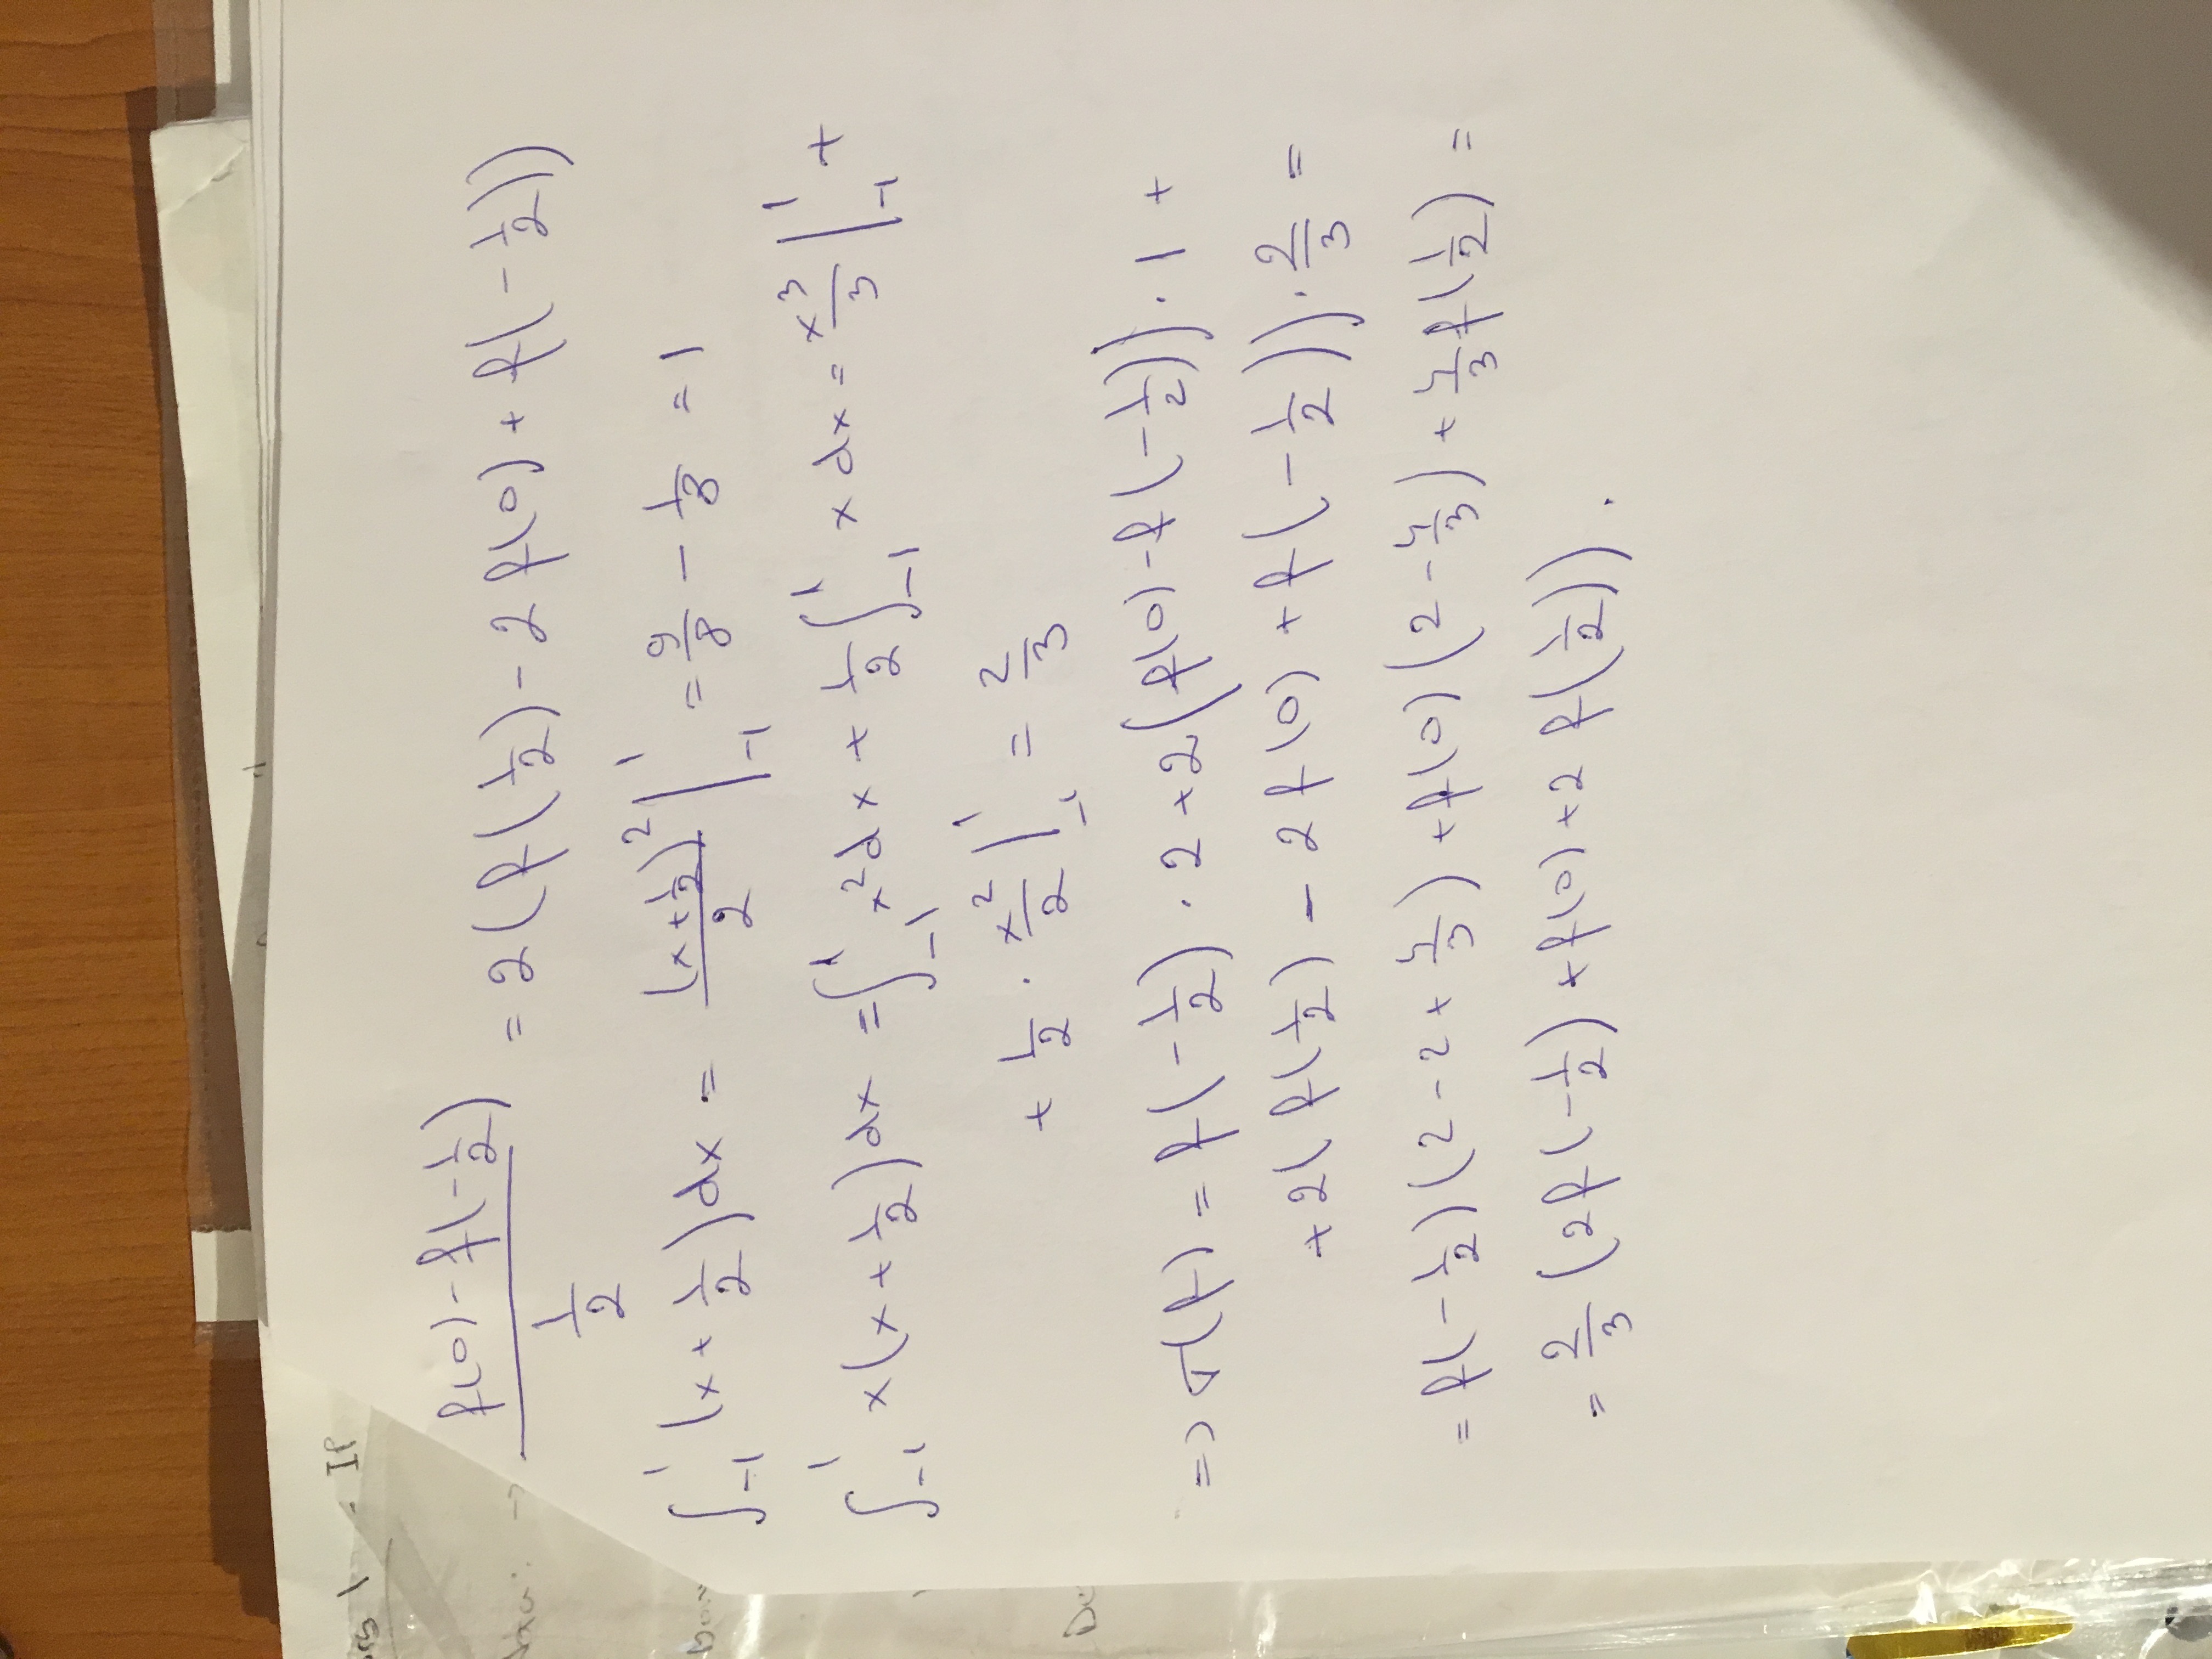 f(0) - f(-1/2) / 1/2 = 2(f(1/2) - 2f(0) + f(-1/2))
∫_{-1}^{1} (x + 1/2)dx = (x + 1/2)^2 / 2 |_{-1}^{1} = 9/8 - 1/8 = 1
∫_{-1}^{1} x(x + 1/2)dx = ∫_{-1}^{1} x^2 dx + 1/2 ∫_{-1}^{1} x dx = x^3/3 |_{-1}^{1} +
+ 1/2 · x^2/2 |_{-1}^{1} = 2/3
=> σ(f) = f(-1/2) · 2 + 2(f(0) - f(-1/2)) · 1 +
+ 2(f(1/2) - 2f(0) + f(-1/2)) · 2/3 =
= f(-1/2)(2 - 2 + 4/3) + f(0)(2 - 4/3) + 4/3 f(1/2) =
= 2/3 (2f(-1/2) + f(0) + 2f(1/2)).